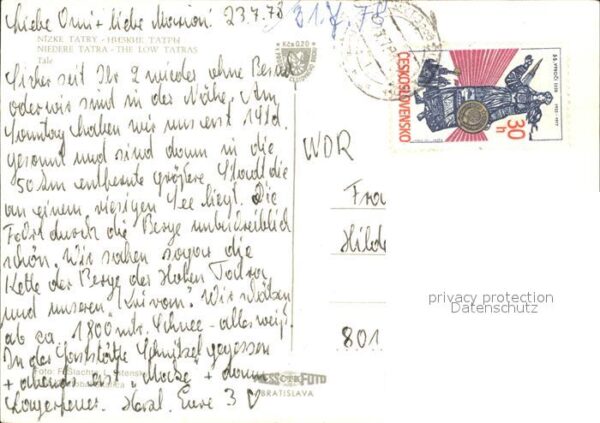 Liebe Omi + liebe Marion! 23.7.78
31.7.78
NÍZKE TATRY - НИЗКИЕ ТАТРЫ
NIEDERE TATRA - THE LOW TATRAS
Tále
Kčs 0,20
Sicher seit Ihr 2 wieder ohne Besuch
oder wir sind in der Nähe. Am
Sonntag haben wir uns erst
gesonnt und sind dann in die
50 km entfernte größere Stadt die
an einem riesigen See liegt. Die
Fahrt durch die Berge unbeschreiblich
schön. Wir sahen sogar die
Kette der Berge der Hohen Tatra
und unseren "Krivan". Wir schätzen
ab ca. 1800 mtr. Schnee - alles weiß.
In der Gaststätte Schnitzel gegessen
+ abends erst + dann
Lagerfeuer. Herzl. Eure 3
Foto: F. Šlachta,
BRATISLAVA
WDR
Fra
Hilde
801
ČESKOSLOVENSKO
30h
privacy protection
Datenschutz